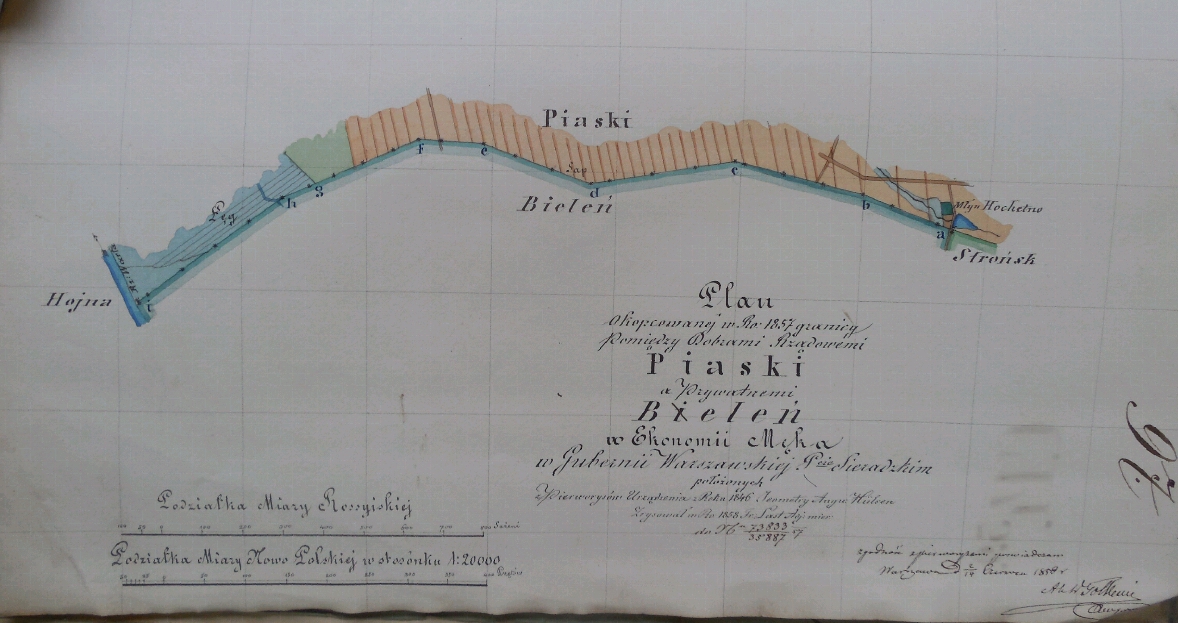 Piaski
f
e
Sap
d
c
g
h
Łęg
Bieleń
b
Młyn Kochetno
a
Strońsk
Rz. Warta
Hojna
i
Plan
Okopcowanej w Ro: 1857 granicy
Pomiędzy Dobrami Rządowemi
Piaski
a Prywatnemi
Bieleń
w Ekonomii Męka
w Gubernii Warszawskiej Pcie Sieradzkim
położonych
z Pierworysów Urządzenia z Roku 1846 Jeometry Augw.
Zrysował w Ro 1858
do No 73833/35887 7
97.
Podziałka Miary Rossyiskiéj
Sażeni
Podziałka Miary Nowo Polskiej w stosónku 1:20000
Prętów
zgodność z pierworysem poswiadczam
Warszawa d Czerwca 1858 r